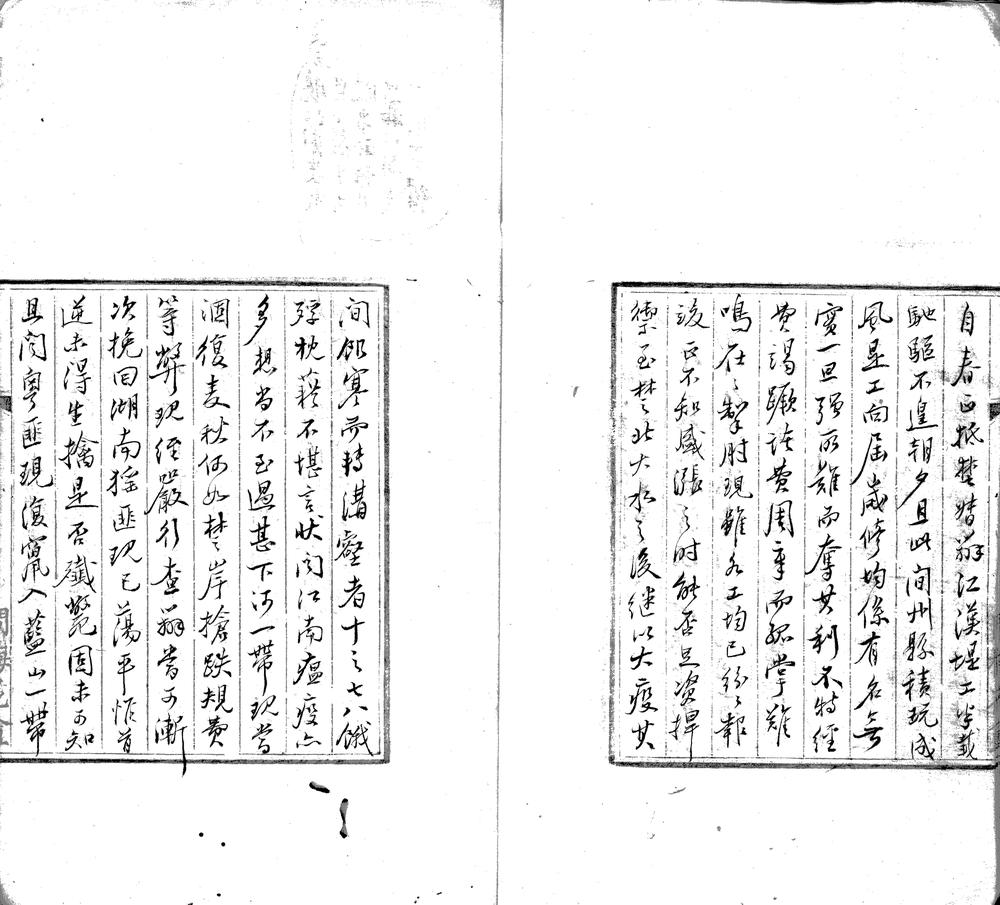 自春正抵楚督辦江漢堤工半載
馳驅不遑朝夕且此間州縣積玩成
風是工向屆歲修均係有名無
實一旦强所難而奪其利不特經
費竭蹶諸費周章而孤掌難
鳴在之掣肘現雖各工均已紛紛報
竣正不知盛漲之時能否足資捍
禦至楚北大水之後繼以大疫其
間飢寒而轉溝壑者十之七八餓
殍枕藉不堪言狀聞江南瘟疫亦
多想當不至過甚下河一帶現當
涸復麦秋何如楚岸搶跌規費
等弊現經嚴行查辦當可漸
次挽回湖南猺匪現已蕩平惟首
逆未得生擒是否殲斃固未可知
且聞粵匪現復竄入藍山一帶